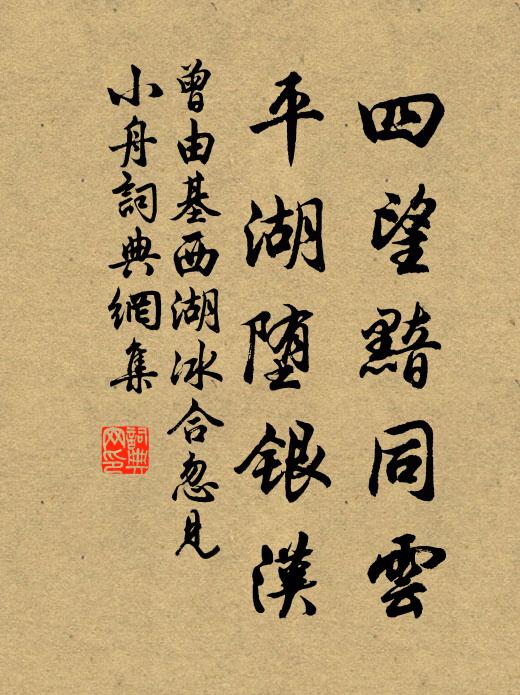 四望黯同雲
平湖堕銀漢
曾由基西湖冰合忽見
小舟詞典網集
詞典
网印